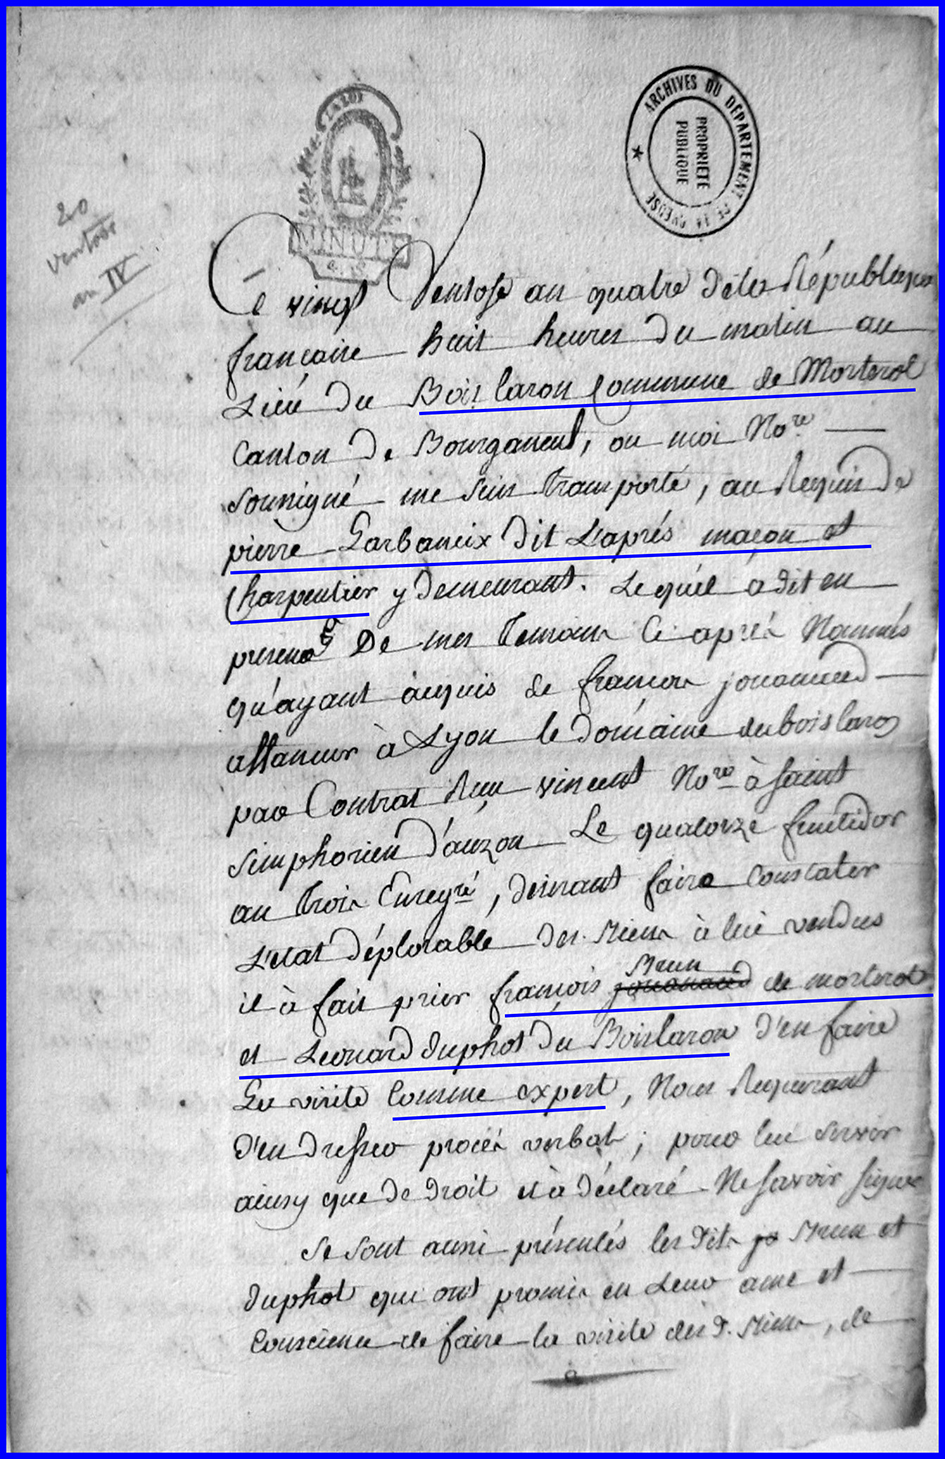 LA LOI
MINUTE
ARCHIVES DU DÉPARTEMENT DE LA CREUSE
PROPRIETE
PUBLIQUE
20
ventose
an IV
Ce vingt Ventose an quatre de la République
francaise huit heures du matin au
Lieu du Bois laron Commune de Morterol
Canton de Bourganeuf, ou moi No.re
soussigné me suis transporté, au Requis de
pierre Garbaneix dit L'aprés maçon et
Charpentier y demeurant. Lequel a dit en
presence De mes Temoins Ci aprés Nommés
qu'ayant acquis de francois jouanneaud
à Lyon le domaine du bois laron
par Contrat Reçu vincent No.re à saint
simphorien d'auzon Le quatorze fructidor
an Trois Euregtré, desirant faire Constater
L'etat déplorable des à lui vendus
il à fait prier francois Meun jouanaud de morterol
et Leonard duphot du Boislaron d'en faire
La visite Comme expert, Nous Requerant
d'en dresser procés verbal ; pour lui servir
ainsy que de droit et à déclaré Ne savoir signer
se sont aussi présentés les dits jo Meun et
duphot qui ont promis en Leur ame et
Conscience de faire la visite des d. , de